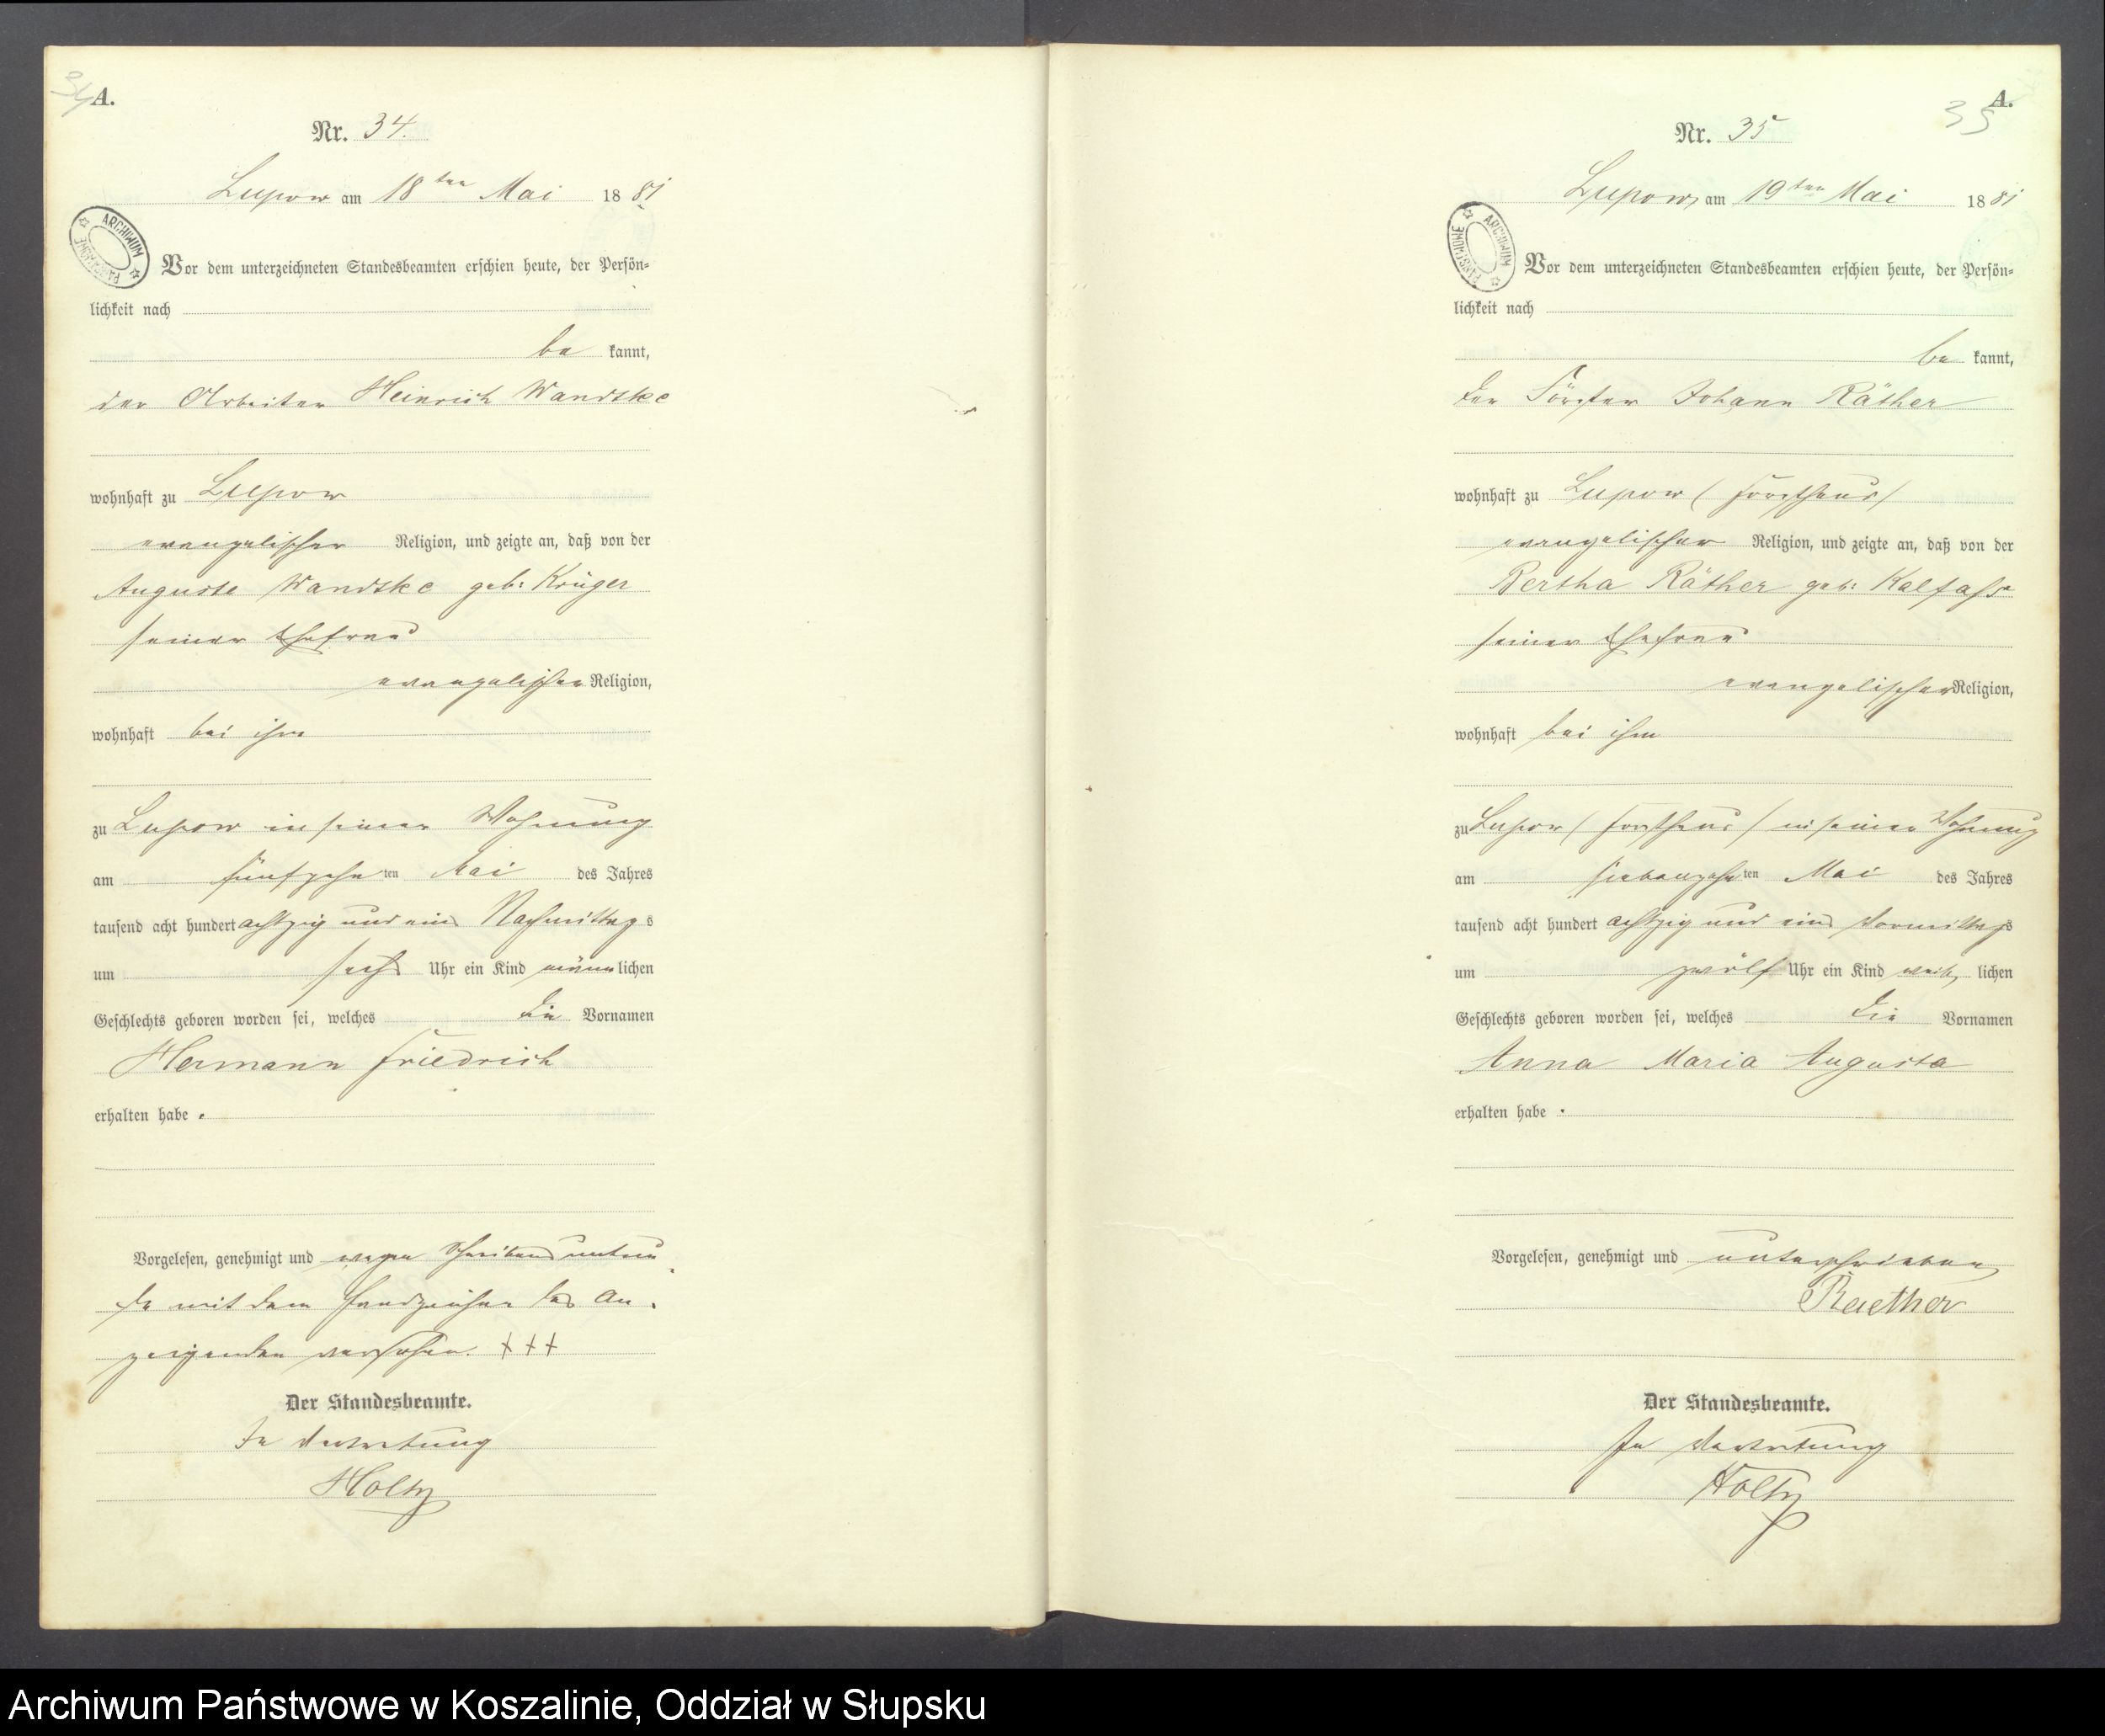 34
A.
Nr. 34.
Lupow am 18ten Mai 1881
ARCHIWUM PAŃSTWOWE
Vor dem unterzeichneten Standesbeamten erschien heute, der Persön-
lichkeit nach
be kannt,
der Arbeiter Heinrich Wandtke
wohnhaft zu Lupow
evangelischer Religion, und zeigte an, daß von der
Auguste Wandtke geb: Krüger
seiner Ehefrau
evangelischer Religion,
wohnhaft bei ihm
zu Lupow in seiner Wohnung
am fünfzehnten Mai des Jahres
tausend acht hundert achtzig und eins Nachmittags
um sechs Uhr ein Kind männlichen
Geschlechts geboren worden sei, welches die Vornamen
Hermann Friedrich
erhalten habe.
Vorgelesen, genehmigt und wegen Schreibens
mit dem Handzeichen des An-
zeigenden versehen. +++
Der Standesbeamte.
In Vertretung
Holtz
A.
35
Nr. 35
Lupow am 19ten Mai 1881
ARCHIWUM PAŃSTWOWE
Vor dem unterzeichneten Standesbeamten erschien heute, der Persön-
lichkeit nach
be kannt,
der Förster Johann Räther
wohnhaft zu Lupow (Forsthaus)
evangelischer Religion, und zeigte an, daß von der
Bertha Räther geb: Kalfass
seiner Ehefrau
evangelischer Religion,
wohnhaft bei ihm
zu Lupow (Forsthaus) in seiner Wohnung
am siebenzehnten Mai des Jahres
tausend acht hundert achtzig und eins Vormittags
um zwölf Uhr ein Kind weiblichen
Geschlechts geboren worden sei, welches die Vornamen
Anna Maria Augusta
erhalten habe.
Vorgelesen, genehmigt und unterschrieben
Raether
Der Standesbeamte.
In Vertretung
Holtz
Archiwum Państwowe w Koszalinie, Oddział w Słupsku